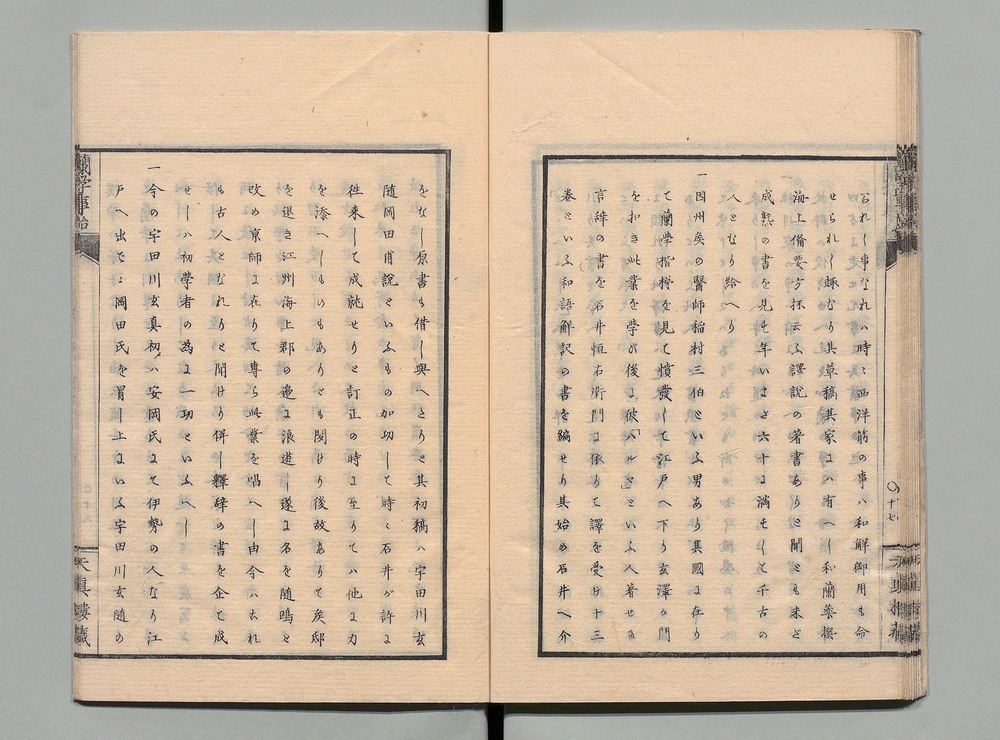 られし事なれハ時々西洋筋の事ハ和解御用も命
せられし趣なり其草稿其家にハ有へし和蘭薬撰
海上備要方抔云ふ譯説の著書ありと聞とも未た
成熟の書を見す年いまた六十に満すして千古の
人となり給へり
一因州矦の醫師稲村三伯といふ男あり其國に在り
て蘭学楷梯を見て憤發して江戸へ下り玄澤の門
を扣き此業を学ひ後に彼ハルマといふ人著せる
言辞の書を石井恒右衛門に依りて譯を受け十三
巻といふ和語解訳の書を編せり其始め石井へ介
をなし原書も借し與へたりと其初稿ハ宇田川玄
随岡田甫説といふもの加功して時々石井が許に
徃来して成就せりと訂正の時に至りてハ他に力
を添へしものもありとも聞けり後故ありて矦邸
を退き江州海上郡の邉に浪遊し遂に名を随鴎と
改め京師に在りて専ら此業を唱へし由今ハ去れ
も古人となれりと聞けり併し釋辞の書を企て成
せしハ初學者の為に一功といふへし
一今の宇田川玄真初メハ安岡氏にて伊勢の人なり江
戸へ出てに岡田氏を冐川上にいふ宇田川玄随の
蘭學事始
天真樓蔵
〇十七